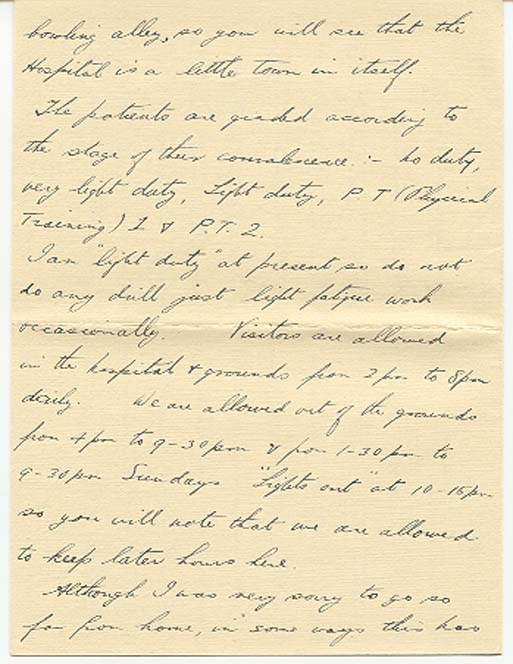 bowling alley, so you will see that the
Hospital is a little town in itself.
The patients are graded according to
the stage of their convalescence :- no duty,
very light duty, Light duty, P.T (Physical
Training) 1 & P.T. 2.
I am "light duty" at present so do not
do any drill just light fatigue work
occasionally. Visitors are allowed
in the hospital & grounds from 2 pm to 8 pm
daily. We are allowed out of the grounds
from 4 pm to 9-30 pm & from 1-30 pm to
9-30 pm Sundays "Lights out" at 10-15 pm
so you will note that we are allowed
to keep later hours here.
Although I was very sorry to go so
far from home, in some ways this has